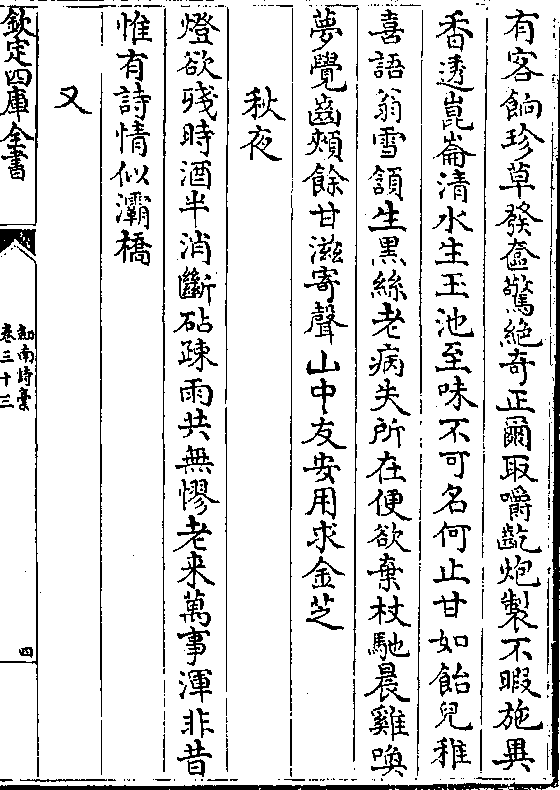 有客餉珍草發奩驚絕奇正爾取嚼齕炮製不暇施異
香透崑崙清水生玉池至味不可名何止甘如飴兒稚
喜語翁雪頷生黑絲老病失所在便欲棄杖馳晨雞喚
夢覺齒頰餘甘滋寄聲山中友安用求金芝
秋夜
燈欲殘時酒半消斷砧疎雨共無憀老來萬事渾非昔
惟有詩情似灞橋
又
欽定四庫全書
劍南詩稾
卷三十三
四